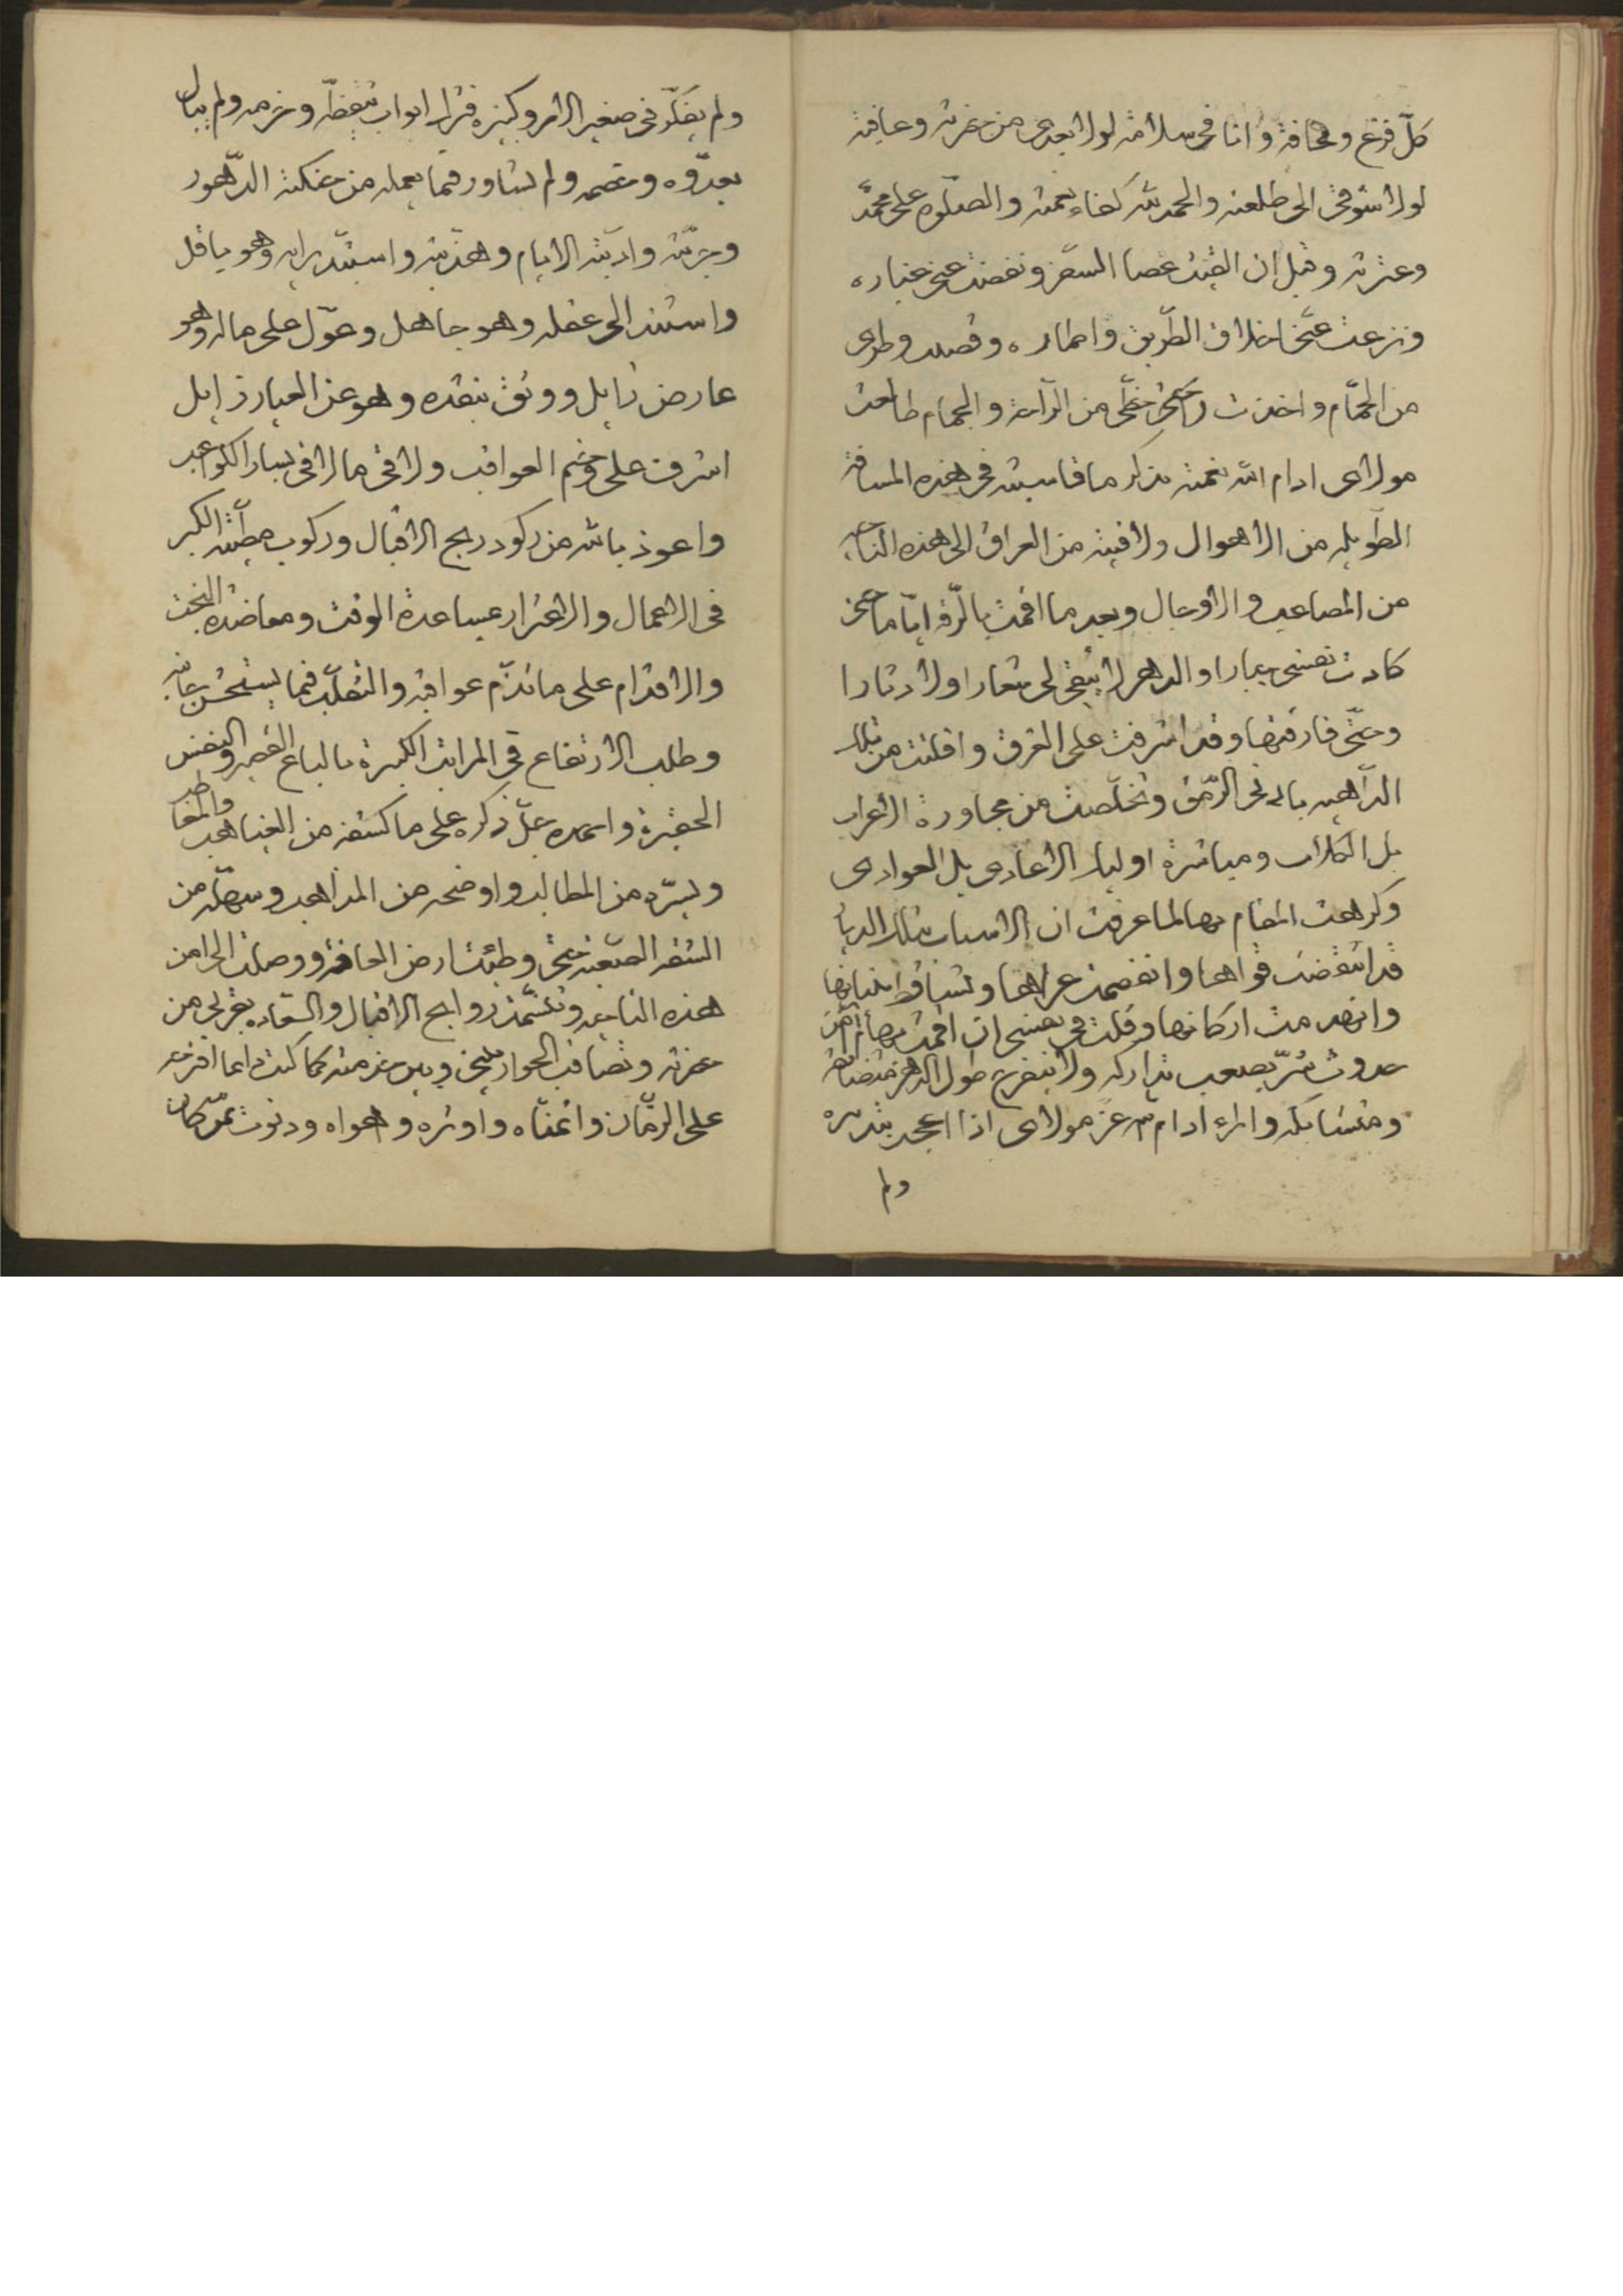 كلّ فزع ومخافة وانا في سلامة لولا بعدي من حضرته وعافية
لولا شوقي الى طلعته والحمد لله كفاء نعمته والصلوة على محمّد
وعترته وقبل ان القيت عصا السفر ونفضت عني غباره
ونزعت عنّي اخلاق الطّريق واطماره وقضيت وطري
من الحمّام واخذت حظّي من الرّاحة والجمام طالعت
مولاى ادام الله نعمته بذكر ما قاسيته في هذه المسافة
الطّويله من الاهوال ولاقيته من العراق الى هذه الناحيه
من المصاعب والاوجال وبعد ما اقمت بالرّقه ايّاما حتى
كادت نفسى جبارا والدهر لا يبقى لى شعارا ولا دثارا
وحتّى فارقتها وقد اشرفت على الغرق وافلتت من تلك
الدّاهيه بادنى الرّمق وتخلّصت من مجاورة الاعراب
بل الكلاب ومباشرة اولياء الاعادى بل العوادى
وكرهت المقام بها لما عرفت ان الاسباب بتلك الديار
قد انتقضت قواها وانفصمت عراها وتساقط بنيانها
وانهدمت اركانها وقلت في نفسى ان اقمت بها لم آمن
حدوث شرّ يصعب تداركه ولا ينفرج طول الدهر متضايقه
ومتشابكه والمرء ادام الله عزّ مولاى اذا اعجب بتدبيره
ولم
ولم يفكّر في صغير الامر وكبيره فترك ابواب تيقظّه وحزمه ولم يبال
بعدّوه وخصمه ولم يشاور فيما يعمله من حنكته الدّهور
وجرّبته وادّبته الايام وهذّبته واستبّد برايه وهو باقل
واستند الى عقله وهو جاهل وعوّل على ماله وهو
عارض زايل ووثق بنقده وهو عن العيار زايل
اشرف على وخيم العواقب ولاقى ما لاقى يسار الكواعب
واعوذ بالله من ركود ريح الاقبال وركوب مطيّة الكبر
في الاعمال والاغترار بمساعدة الوقت ومعاضدة البخت
والاقدام على ما تذّم عواقبه والتقلّب فيما يستخشن جانبه
وطلب الارتفاع في المراتب الكبيرة بالباع القصير والنفس
الحقيرة واحمده جلّ ذكره على ما كشفه من الغياهب
ويسّره من المطالب واوضحه من المذاهب وسهّله من
السفر الصّعبة حتى وطئت ارض المعافة ووصلت الى امن
هذه الناحيه وتنسّمت روايح الاقبال والسّعاده بقربى من
حضرته وتصاقب الجوار بينى وبين خدمته كما كنت دايما اقترحه
على الزمّان واتمنّاه واوثره واهواه ودنوت ممّن كان